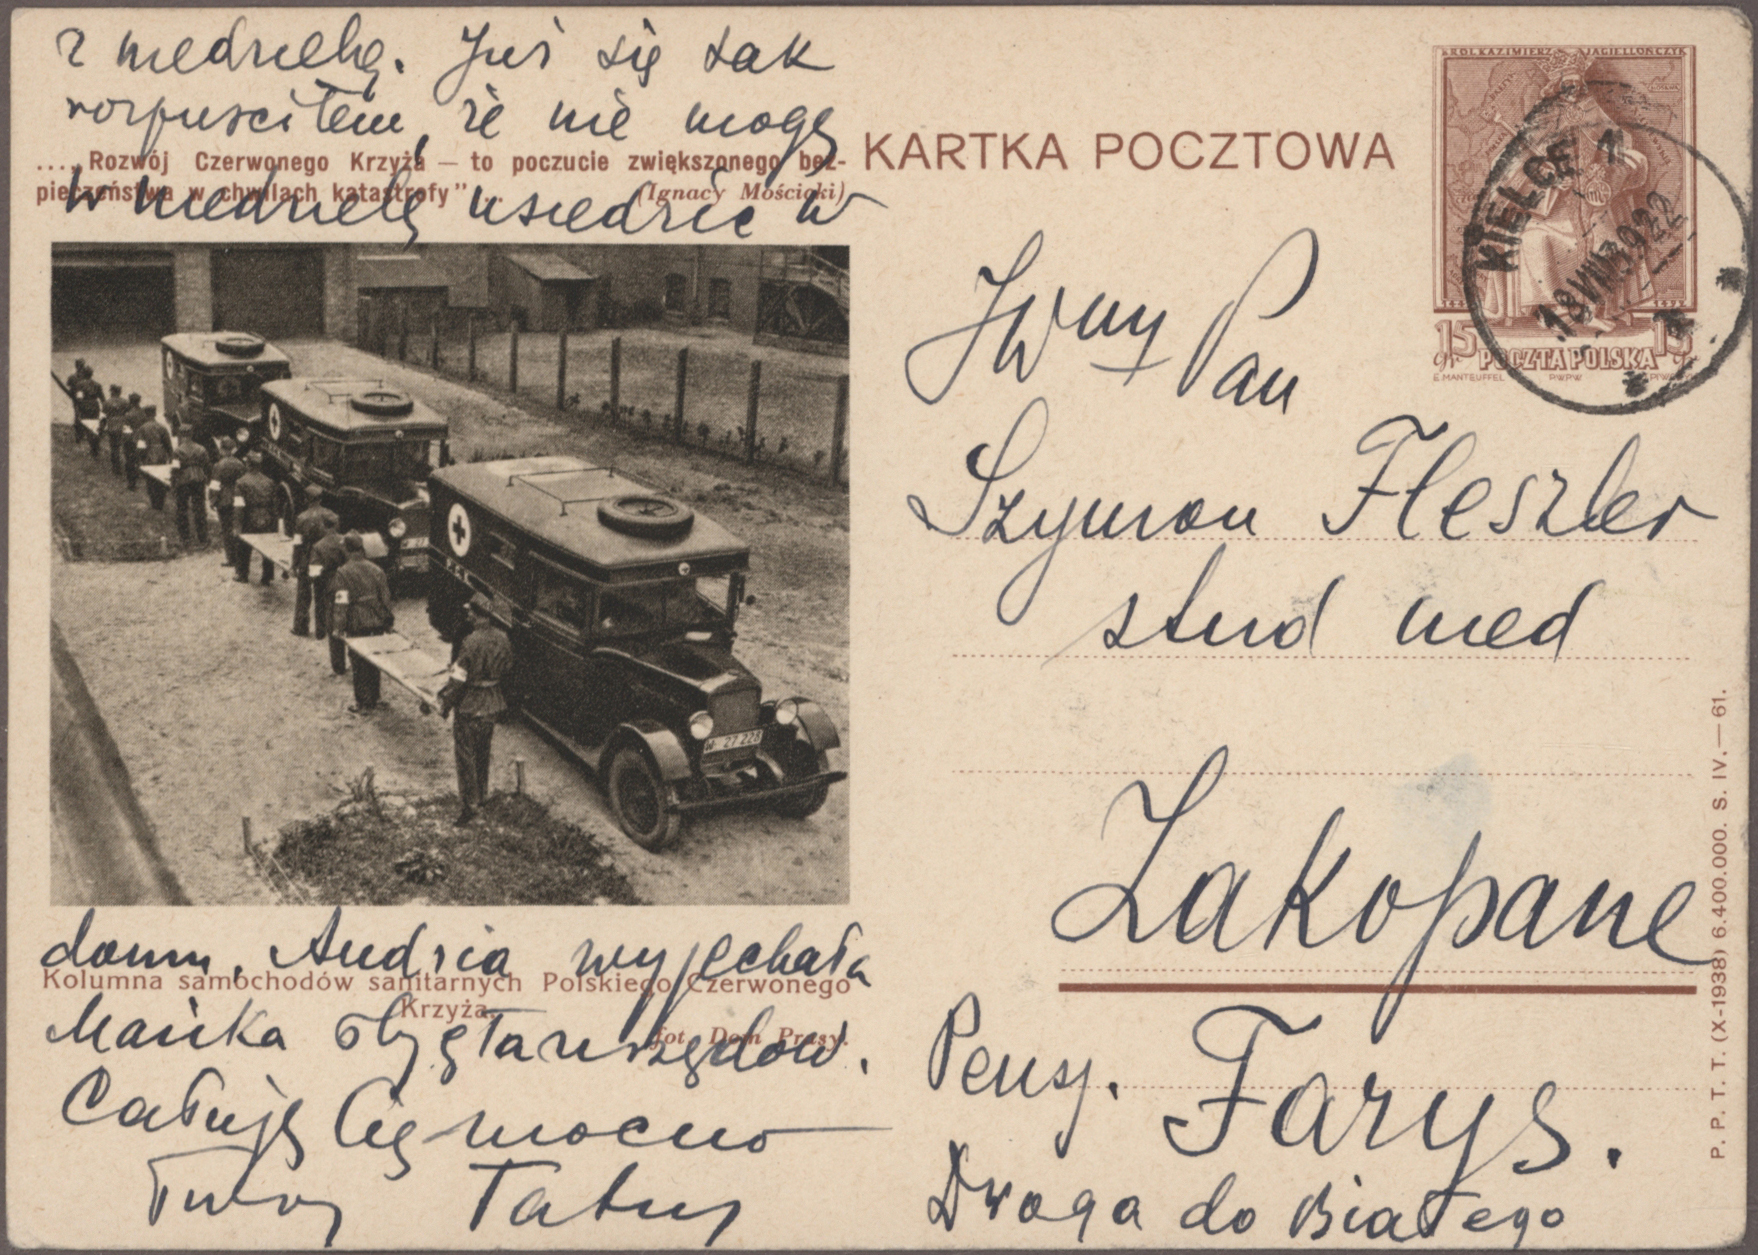 z niedzielą. Już się tak
rozpuściłem, że nie mogę
...„Rozwój Czerwonego Krzyża — to poczucie zwiększonego bez-
pieczeństwa w chwilach katastrofy”...
(Ignacy Mościcki)
w niedzielę usiedzić w
domu. Andzia wyjechała
Kolumna samochodów sanitarnych Polskiego Czerwonego
Krzyża.
fot. Dom Prasy.
Mańka
Całuję Cię mocno
Twój Tatuś
KARTKA POCZTOWA
KRÓL KAZIMIERZ JAGIELLOŃCZYK
15 15
gr. POCZTA POLSKA gr.
E. MANTEUFFEL PWPW
KIELCE 1
18 VIII 39 22
JWny Pan
Szymon Fleszler
stud med
Zakopane
Pensj. Farys.
Droga do Białego
P. P. T. T. (X-1938) 6.400.000. S. IV.—61.
W. 27.228